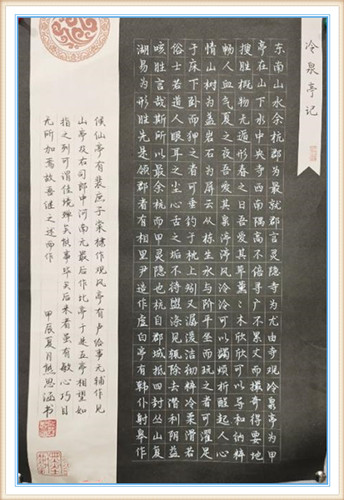 冷泉亭记
东南山水余杭郡为最就郡言灵隐寺为尤由寺观冷泉亭为甲
亭在山下水中央寺西南隅高不倍寻广不累丈而撮奇得要地
搜胜概物无遁形春之日吾爱其草薰薰木欣欣可以导和纳粹
畅人血气夏之夜吾爱其泉渟渟风泠泠可以蠲烦析酲起人心
情山树为盖岩石为屏云从栋生水与阶平坐而玩之者可濯足
于床下卧而狎之者可垂钓于枕上矧又潺湲洁澈粹冷柔滑若
俗士若道人眼耳之尘心舌之垢不待盥涤见辄除去潜利阴益
胜言哉斯所以最余杭而甲灵隐也杭自郡城抵四封丛山复
湖易为形胜先是领郡者有相里尹造作虚白亭有韩仆射皋作
候仙亭有裴庶子棠棣作观风亭有卢给事元辅作见
山亭及右司郎中河南元最后作此亭于是五亭相望如
指之列可谓佳境殚矣能事毕矣后来者虽有敏心巧目
无所加焉故吾继之述而作
甲辰夏月熊思涵书